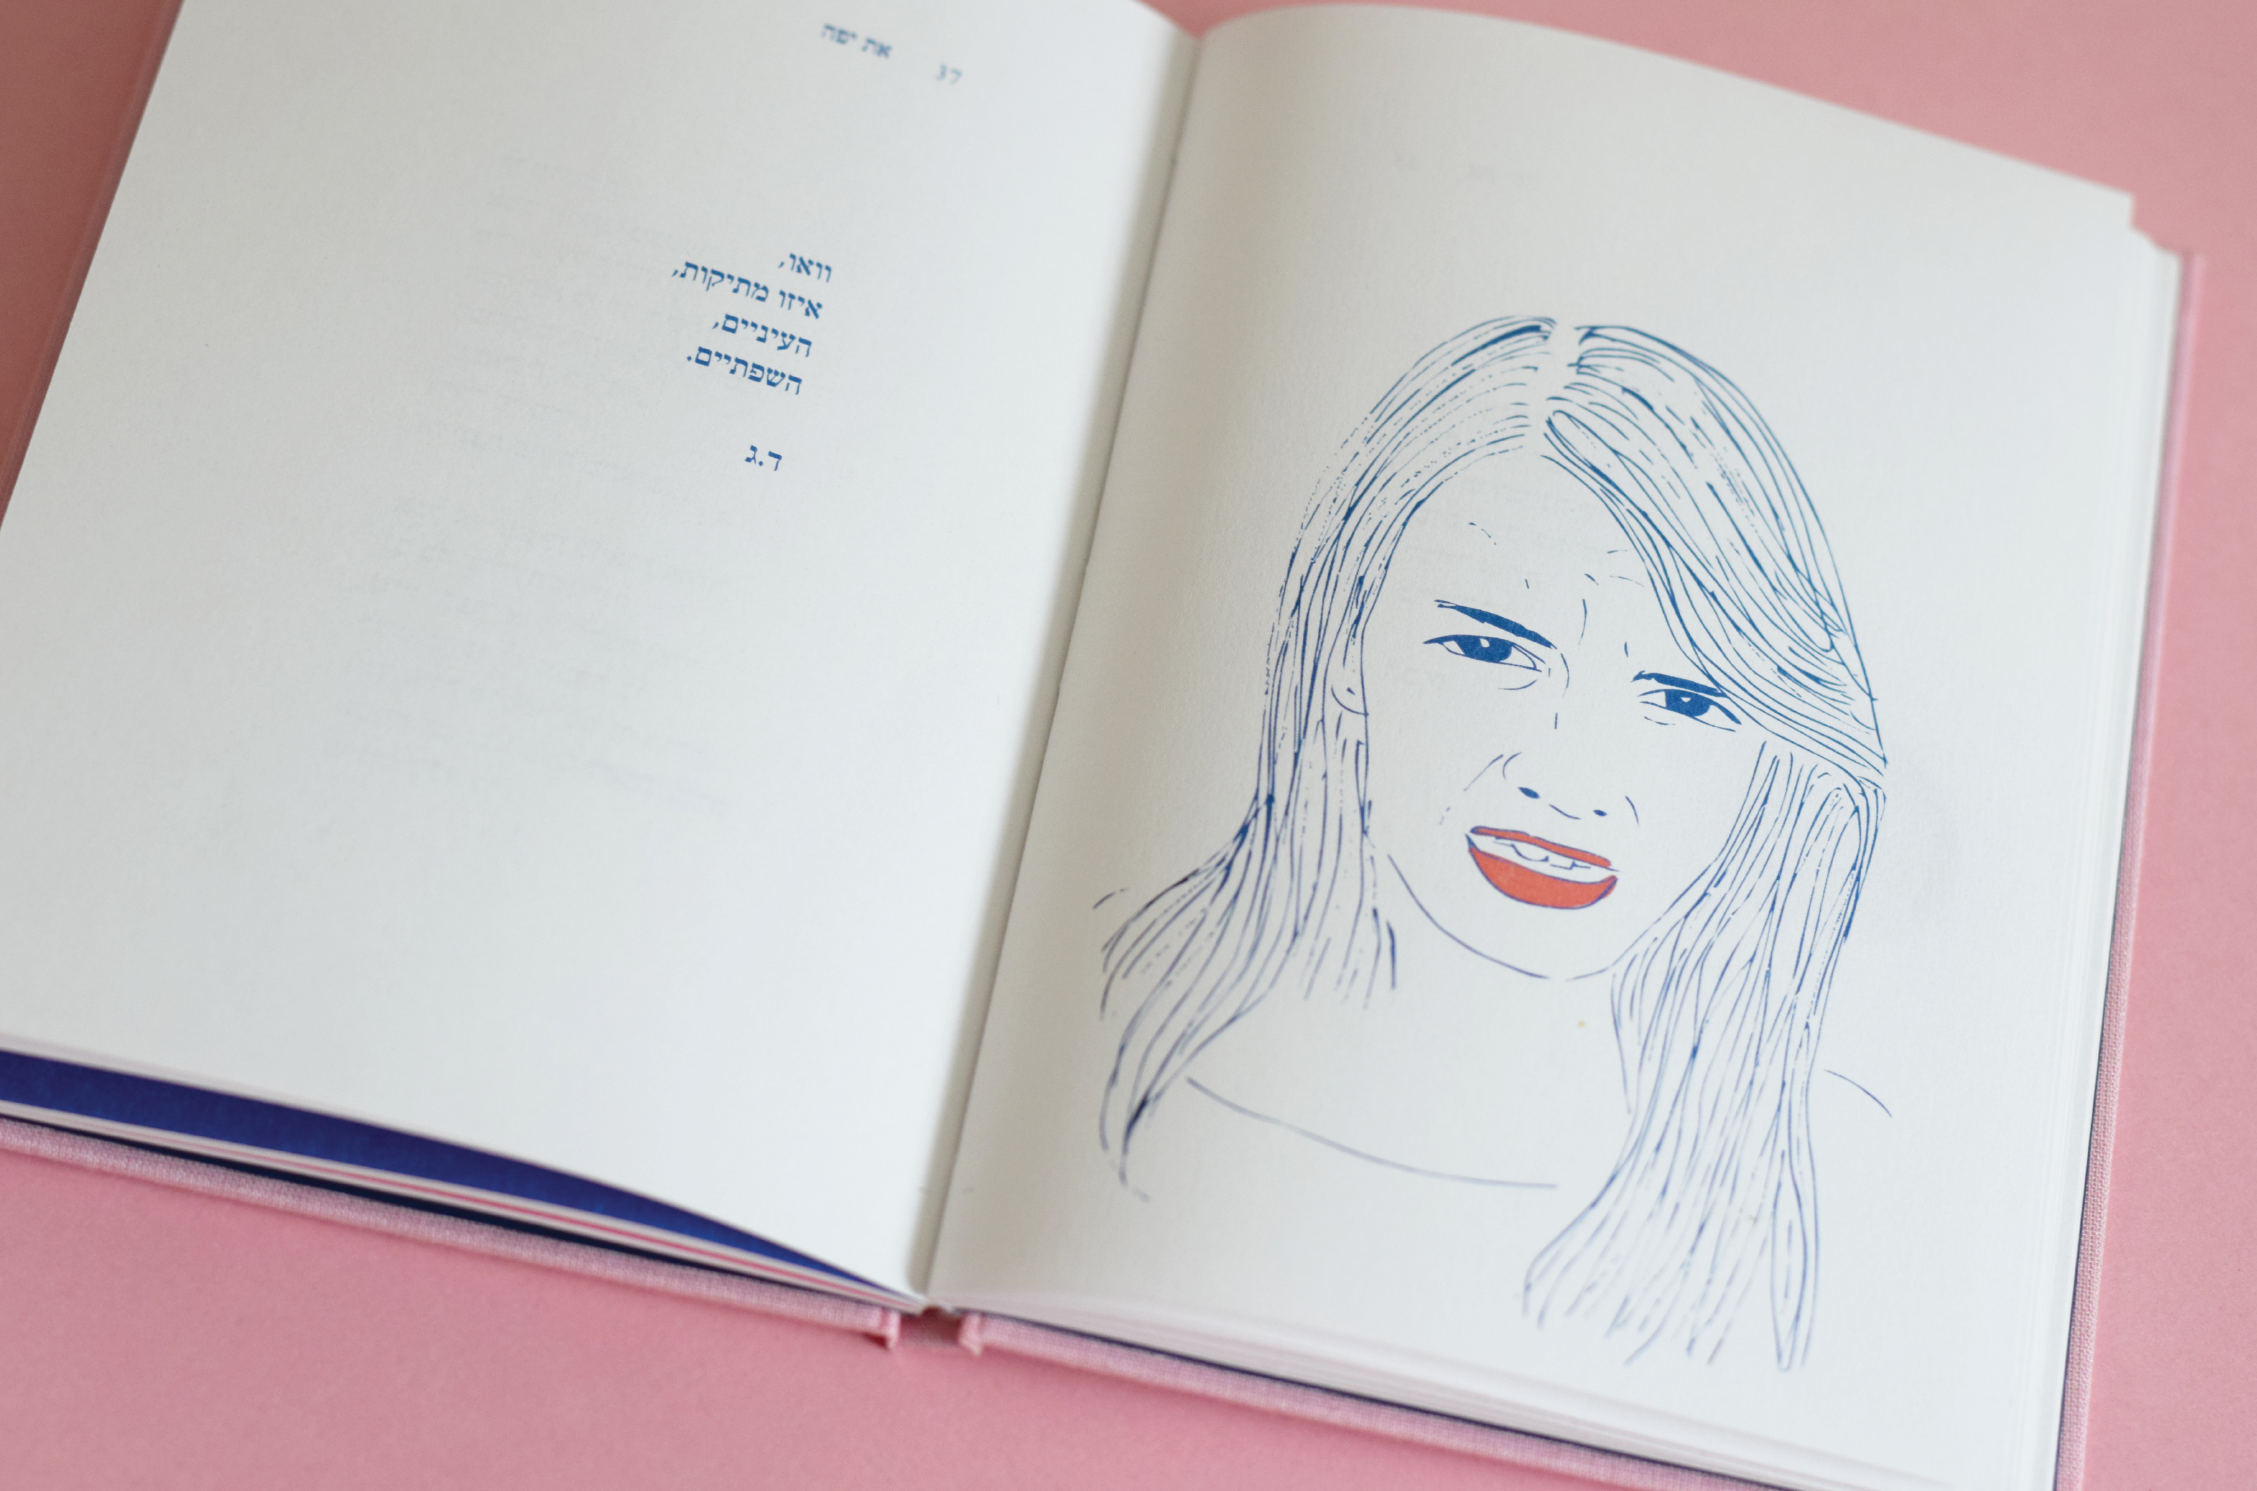 37 את יפה
וואו,
איזו מתיקות,
העיניים,
השפתיים.
ד.ג